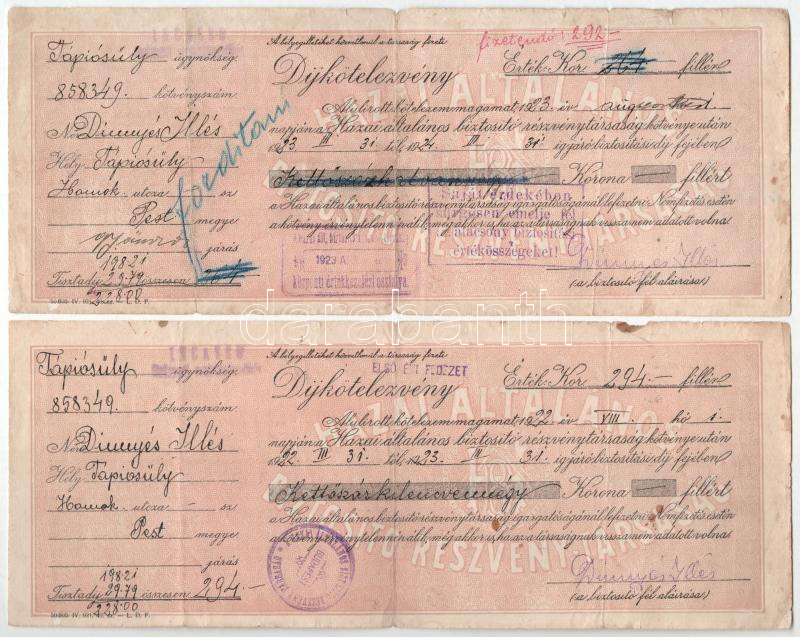 A bélyegilletéket készpénzül a társaság fizeti
fizetendő: 292-
Tápiósüly ügynökség.
Díjkötelezvény
Érték: Kor. fillér
858349. kötvényszám.
Alulirott kötelezem magamat 1923. év
Név Dinnyés Illés
napján a Hazai általános biztosító részvénytársaság kötvénye után
Hely: Tápiósüly
1923 III 31. től, 1924 III 31. ig járó biztosítási díj fejében
Homok utcza — sz.
Korona — fillért
Pest megye
a Hazai általános biztosító részvénytársaság igazgatóságánál lefizetni. Nemfizetés esetén
a kötvény érvénytelenné válik, még akkor is, ha az a társaságnak vissza nem adatott volna.
járás
fordítani
Saját érdekében
sürgősen emelje fel
alacsony biztosítási
értékösszegeket!
1923 A
központi értékkezelési osztálya.
198.21
Tisztadíj 29.79 összesen
228.00
Dinnyés Illés
(a biztosító fél aláírása.)
HAZAI ÁLTALÁNOS
BIZTOSÍTÓ RÉSZVÉNYTÁRSASÁG
darabanth
A bélyegilletéket készpénzül a társaság fizeti
ELSŐ ÉVI FEDEZET
Tápiósüly ügynökség.
Díjkötelezvény
Érték: Kor. 294.— fillér
858349. kötvényszám.
Alulirott kötelezem magamat 1922. év VIII hó 1.
Név Dinnyés Illés
napján a Hazai általános biztosító részvénytársaság kötvénye után
Hely: Tápiósüly
1922. III 31. től, 1923. III 31. ig járó biztosítási díj fejében
Homok utcza — sz.
Kettőszázkilencvennégy Korona — fillért
Pest megye
a Hazai általános biztosító részvénytársaság igazgatóságánál lefizetni. Nemfizetés esetén
a kötvény érvénytelenné válik, még akkor is, ha az a társaságnak vissza nem adatott volna.
járás
198.21
Tisztadíj 29.79 összesen 294.—
228.00
Dinnyés Illés
(a biztosító fél aláírása.)
HAZAI ÁLTALÁNOS
BIZTOSÍTÓ RÉSZVÉNYTÁRSASÁG